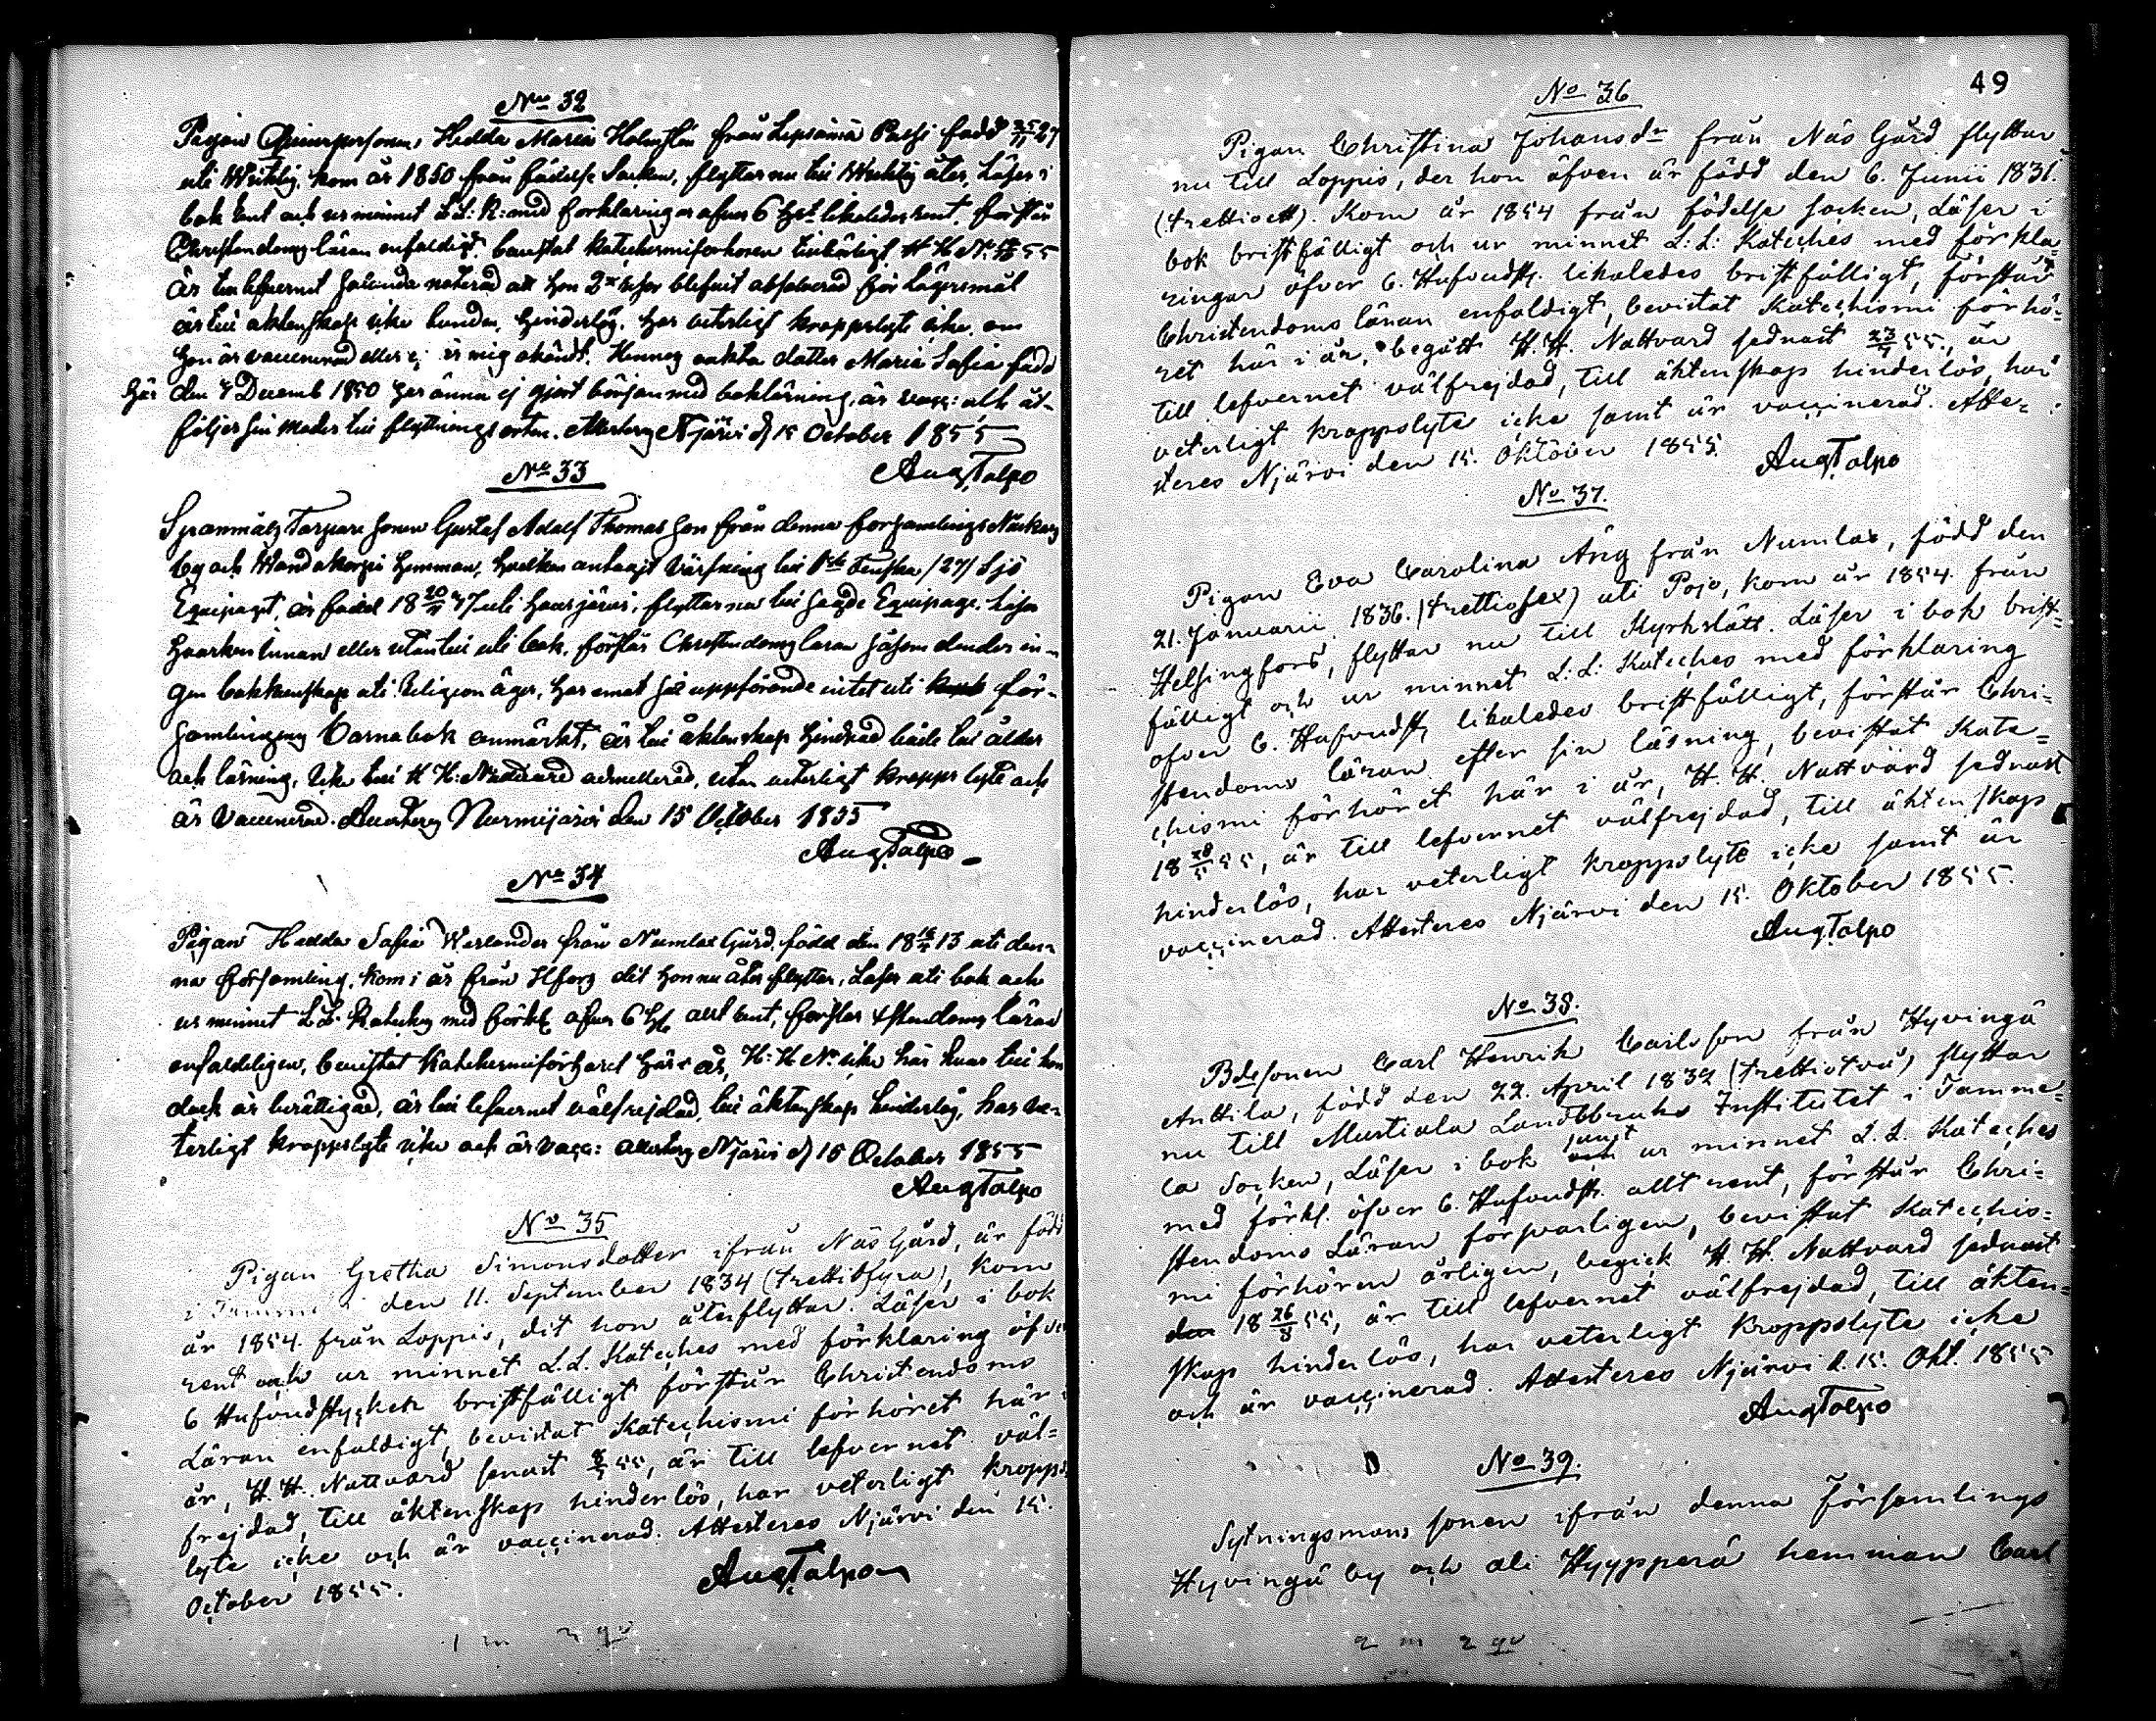 No 32
Pigan Qvinspersonen, Hedda Maria Holmstén från Lepsämä Palsi född 25/11 27
uti Wichtis, kom år 1850 från födelse Socken, flyttar nu till Wichtis åter, Läser i
bok rent och ur minnet L L: K: med forklaringar öfver 6 Hst likaledes rent, förstår
Christendoms läran enfaldigt, bevistat Katechismiförhören H H N
är till lefvernet så lunda noterad att hon 2ne resor blifvit absolverad för Lägersmål
är till äktenskap icke bunden, hinderlös, har veterligt kroppslyte icke, om
hon är vaccinerad eller ej är mig okändt. Hennes oäkta dotter Maria Sofia född
här den 4 Decemb 1850 har ännu ej gjort början med bokläsning, är vacc: och åt-
följer sin moder till flyttnings orten. Attesteras Njärvi d 15 October 1855
Aug Talpo
No 33
Spanmåls Torpare sonen Gustaf Adolf Thomasson från denna Församlings
by och hemman, hvilken antagit värfning till 1sta Finska /27/ Sjö
Equipaget, är född 18 20/4 37 uti Hausjärvi, flyttar nu till sagde Equipage. Läser
hvarken innan eller utantill uti bok, förstår Christendoms läran såsom den der in-
gen bokkunskap uti Religion äger, har emot sitt uppförande intet uti för-
samlingens Barnabok anmärkt, är till äktenskap hindrad både till ålder
och läsning, icke till H H: Nattvard admitterad, utan veterligt kroppslyte och
är Vaccinerad. Attesteras Nurmijärvi den 15 October 1855
Aug Talpo
No 34
Pigan Hedda Sofia Welander från Numlax Gård, född den 18 16/4 13 uti den-
na församling, kom i år från Hfors dit hon nu åter flyttar, Läser uti bok och
ur minnet L L: Kateches med förkl. öfver 6 Hst allt rent, förstår Xstendoms läran
enfaldeligen, bevistat Katechismiförhöret här i år, H: H N: icke här hvar till hon
dock är berättigad, är till lefvernet välfrejdad, till äktenskap hinderlös, har ve-
terligt kroppslyte icke och är vacc: Attesteras Njärvi d 15 October 1855
Aug Talpo
No 35
Pigan Gretha Simonsdotter ifrån Näs Gård, är född
i den 11. September 1834 (trettiofyra), kom
år 1854. från Loppis, dit hon återflyttar. Läser i bok
rent och ur minnet L.L. Kateches med förklaring öfver
6 Hufvudstycken bristfälligt förstår Christendoms
Läran enfaldigt, bevistat Katechismi förhöret här i
år, H. H. Nattvard senast 55, är till lefvernet väl=
frejdad, till äktenskap hinderlös, har veterligt kropps
lyte icke och är vaccinerad. Attesteras Njärvi den 15.
October 1855.
Aug Talpo
49
No 36
Pigan Christina Johansdr från Näs Gård flyttar
nu till Loppis, der hon äfven är född den 6. Junii 1831.
(trettioett). Kom år 1854 från födelse socken, Läser i
bok bristfälligt och ur minnet L: L: Kateches med förkla=
ringar öfver 6. Hufvudst. likaledes bristfälligt, förstår
Christendoms läran enfaldigt, bevistat Katechismi förhö=
ret här i år, begått H. H. Nattvard sednast 23/7 55, är
till lefvernet välfrejdad, till äktenskap hinderlös, har
veterligt kroppslyte icke samt är vaccinerad. Atte=
steras Njärvi den 15. Oktober 1855.
Aug Talpo
No 37.
Pigan Eva Carolina Äng från Numlax, född den
21. Januarii 1836. (trettiosex) uti Pojo, kom år 1854. från
Helsingfors, flyttar nu till Kyrkslätt. Läser i bok brist=
fälligt och ur minnet L: L: Kateches med förklaring
öfver 6. Hufvudst. likaledes bristfälligt, förstår Chri=
stendoms läran efter sin läsning, bevistat Kate=
chismi förhöret här i år, H. H. Nattvard sednast
18 28/5 55, är till lefvernet välfrejdad, till äktenskap
hinderlös, har veterligt kroppslyte icke samt är
vaccinerad. Attesteras Njärvi den 15. Oktober 1855.
Aug Talpo
No 38.
Bdesonen Carl Henrik Carlsson från Hyvingä
Anttila, född den 22. April 1832 (trettiotvå) flyttar
nu till Mustiala Landtbruks Institutet i Tamme=
la Socken, Läser i bok samt ur minnet L. L. Kateches
med förkl. öfver 6. Hufvudst. allt rent, förstår Chri=
stendoms Läran försvarligen, bevistat Katechis=
mi förhören årligen, begick H. H. Nattvard sednast
den 18 26/8 55, är till lefvernet välfrejdad, till äkten=
skap hinderlös, har veterligt kroppslyte icke
och är vaccinerad. Attesteras Njärvi d. 15. Okt. 1855
Aug Talpo
No 39.
Sytningsmans sonen ifrån denna Församlings
Hyvingä by och Ali Hyypperä hemman Carl